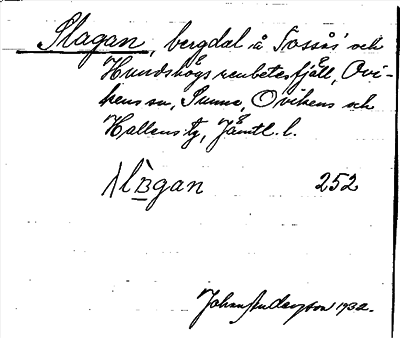 Slagan, bergdal å Tossås' och
Hundshögs renbetesfjäll, Ovi-
kens sn, Sunne, Ovikens och
Hallens tg, Jämtl. l.
252
Johan Anderson 1932.